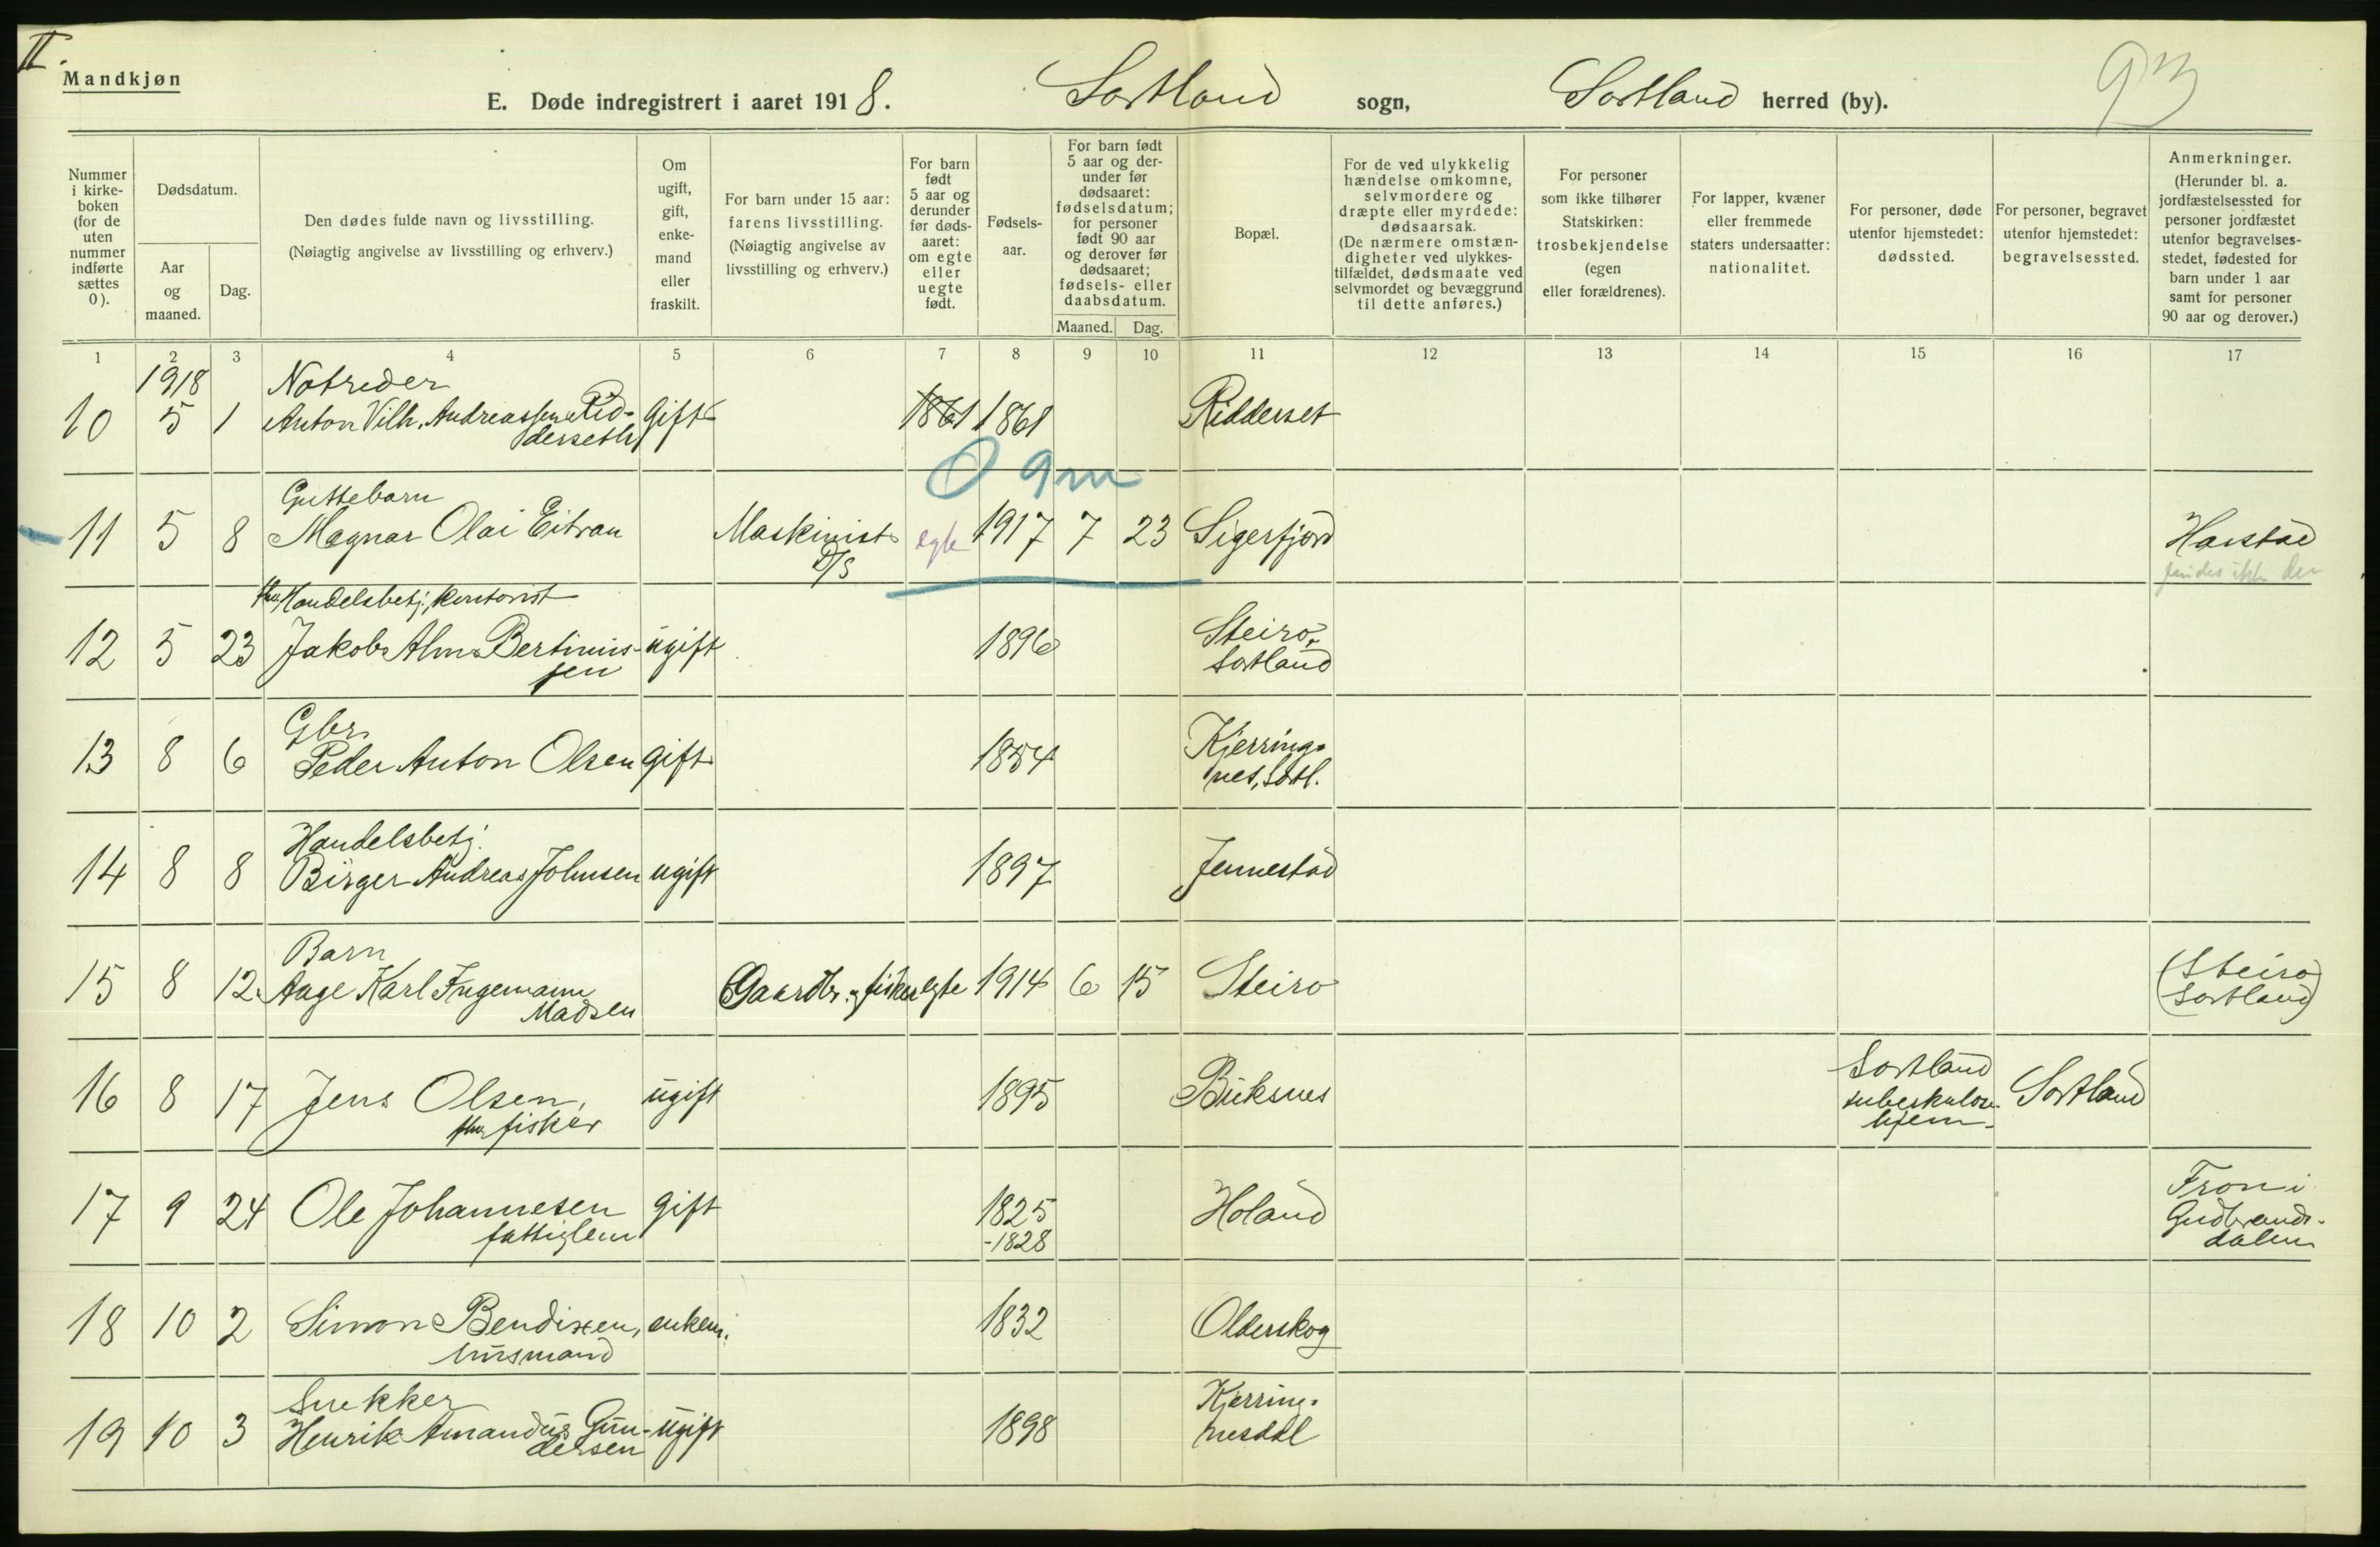 II.
Mandkjøn
E. Døde indregistrert i aaret 1918. Sortland sogn, Sortland herred (by).
93
Nummer i kirke- boken (for de uten nummer indførte sættes 0).
Dødsdatum.
Aar og maaned.
Dag.
Den dødes fulde navn og livsstilling.
(Nøiagtig angivelse av livsstilling og erhverv.)
Om ugift, gift, enke- mand eller fraskilt.
For barn under 15 aar: farens livsstilling. (Nøiagtig angivelse av livsstilling og erhverv.)
For barn født 5 aar og derunder før døds- aaret: om egte eller uegte født.
Fødsels- aar.
For barn født 5 aar og der- under før dødsaaret: fødselsdatum; for personer født 90 aar og derover før dødsaaret; fødsels- eller daabsdatum.
Maaned. Dag.
Bopæl.
For de ved ulykkelig hændelse omkomne, selvmordere og dræpte eller myrdede: dødsaarsak. (De nærmere omstæn- digheter ved ulykkes- tilfældet, dødsmaate ved selvmordet og bevæggrund til dette anføres.)
For personer som ikke tilhører Statskirken: trosbekjendelse (egen eller forældrenes).
For lapper, kvæner eller fremmede staters undersaatter: nationalitet.
For personer, døde utenfor hjemstedet: dødssted.
For personer, begravet utenfor hjemstedet: begravelsessted.
Anmerkninger. (Herunder bl. a. jordfæstelsessted for personer jordfæstet utenfor begravelses- stedet, fødested for barn under 1 aar samt for personer 90 aar og derover.)
1 2 3 4 5 6 7 8 9 10 11 12 13 14 15 16 17
1918 Notreder
10 5 1 Anton Vilh. Andreassen Rid- gift 1861 1861 Ridderset
derseth
0 9m
Guttebarn
11 5 8 Magnar Olai Eitran Maskinist egte 1917 7 23 Sigerfjord Harstad
D/S findes ikke der
Handelsbetj., kontorist
12 5 23 Jakob Alm Bertinius- ugift 1896 Steiro,
sen Sortland
Gbr.
13 8 6 Peder Anton Olsen gift 1854 Kjerring-
nes, Sortl.
Handelsbetj.
14 8 8 Birger Andreas Johnsen ugift 1897 Jennestad
Barn
15 8 12 Aage Karl Ingemann Gaardbr. og fisker egte 1914 6 15 Steiro (Steiro
Madsen Sortland)
16 8 17 Jens Olsen, ugift 1895 Buksnes Sortland tuberkulose- hjem. Sortland
fisker
17 9 24 Ole Johannesen gift 1825 Holand Fron i
fattiglem -1828 Gudbrands-
dalen
18 10 2 Simon Bendixen, enkem. 1832 Olderskog
husmand
Snekker
19 10 3 Henrik Amandus Gun- ugift 1898 Kjerring-
dersen nesdal